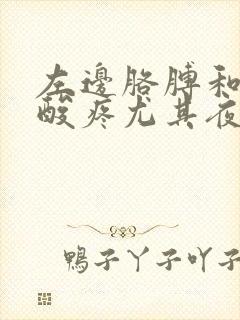 左邊胳膊和
酸疼尤其夜
鴨子丫子吖子